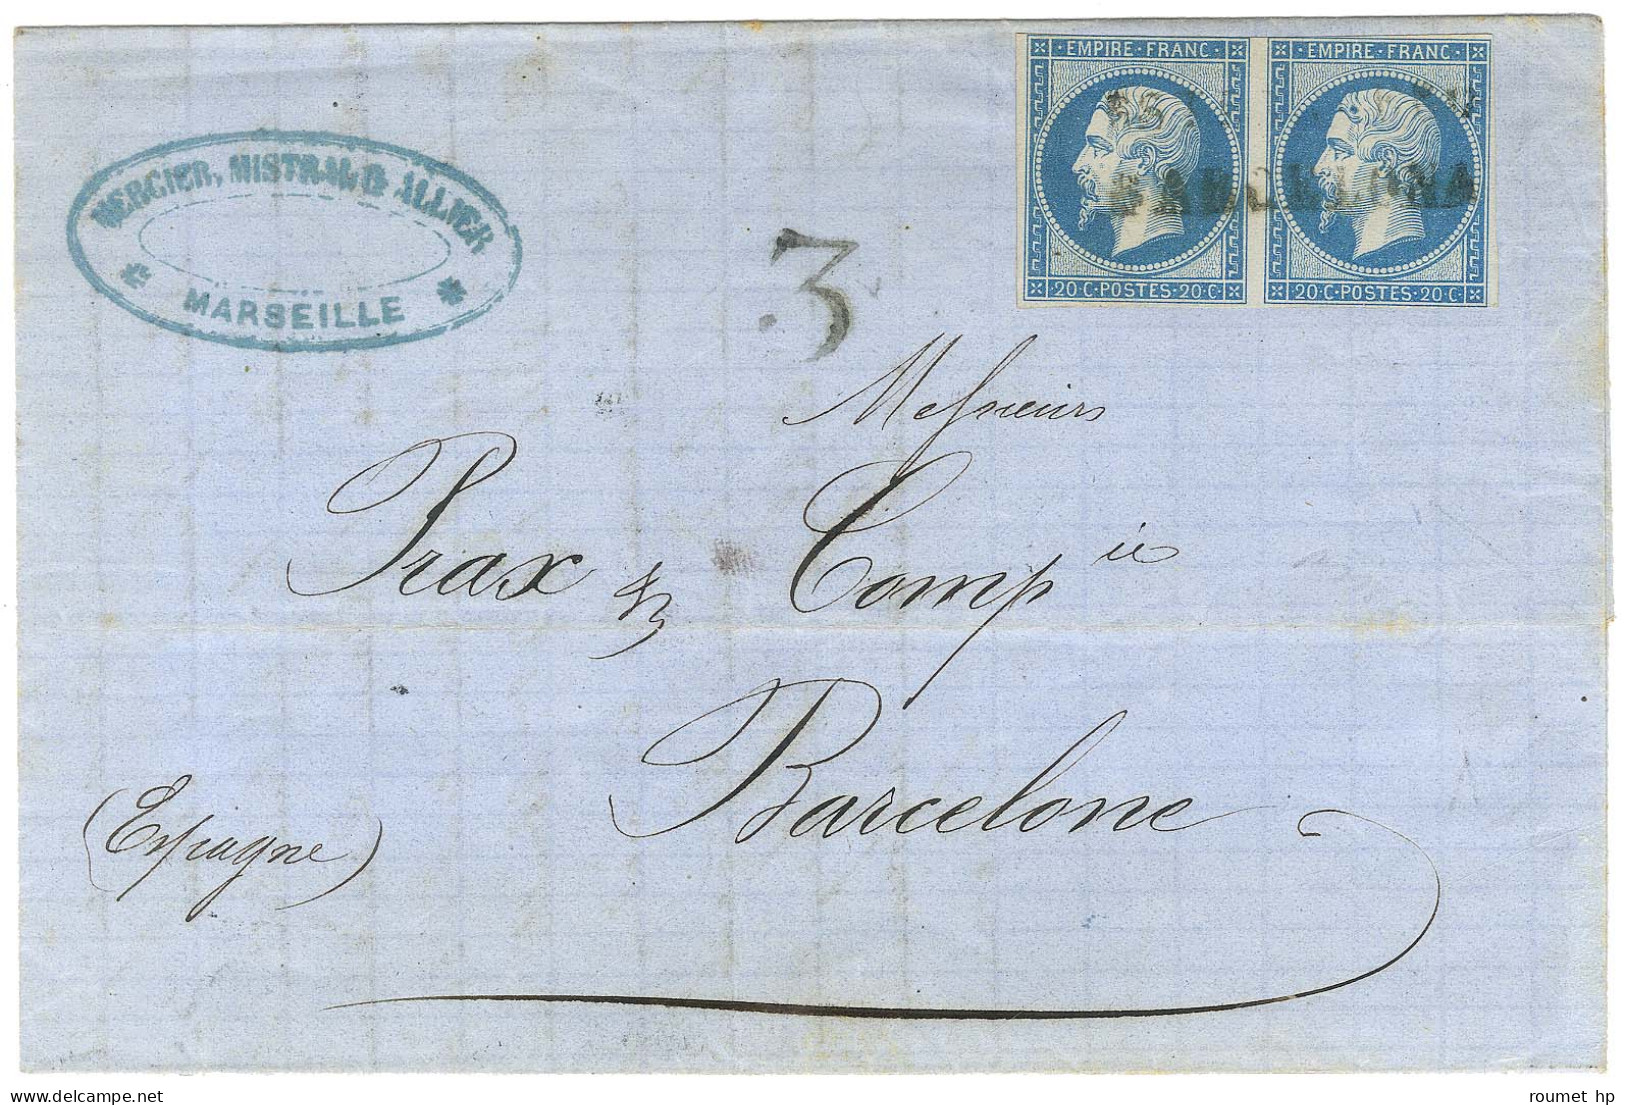 EMPIRE·FRANC· EMPIRE·FRANC·
BARCELONA
20·C·POSTES·20·C· 20·C·POSTES·20·C·
MERCIER, MISTRAL & ALLIER
MARSEILLE
3
Messieurs
Prax & Comp ie
Barcelone
(Espagne)
roumet hp